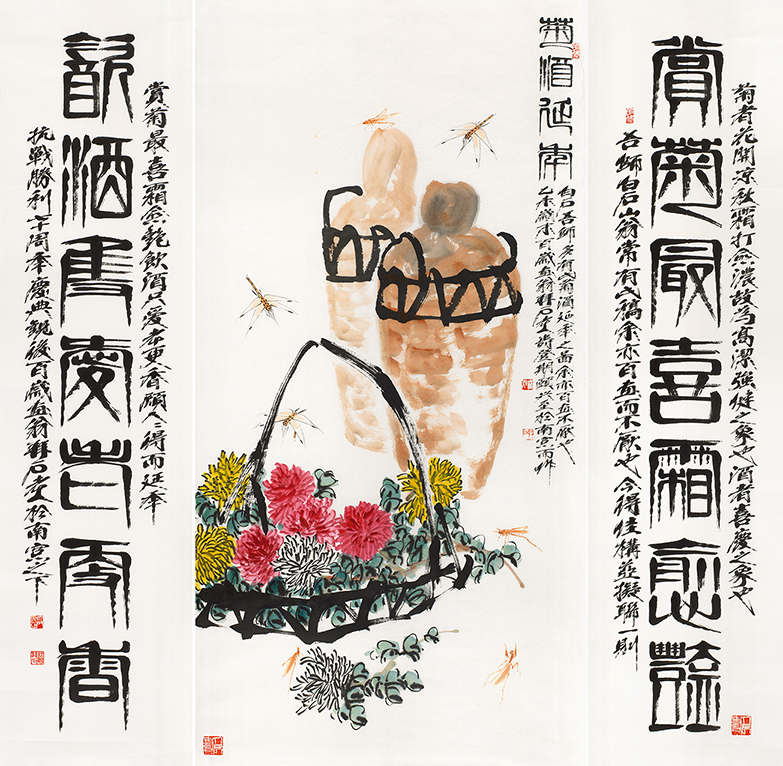 賞菊最喜霜愈艷
菊者花開凉秋霜打愈濃故為高潔強健之象也酒者喜慶之象也
吾師白石山翁常有此稿余亦百畫而不厭也今得佳構並擬聯一則
菊酒延年
白石吾師多有菊酒延年之圖余亦百畫不厭也
乙未歲末百歲畫翁
飲酒隻愛老更香
賞菊最喜霜愈艷飲酒只愛老更香願人人得而延年
抗戰勝利七十周年慶典観後百歲畫翁 於南寧之下